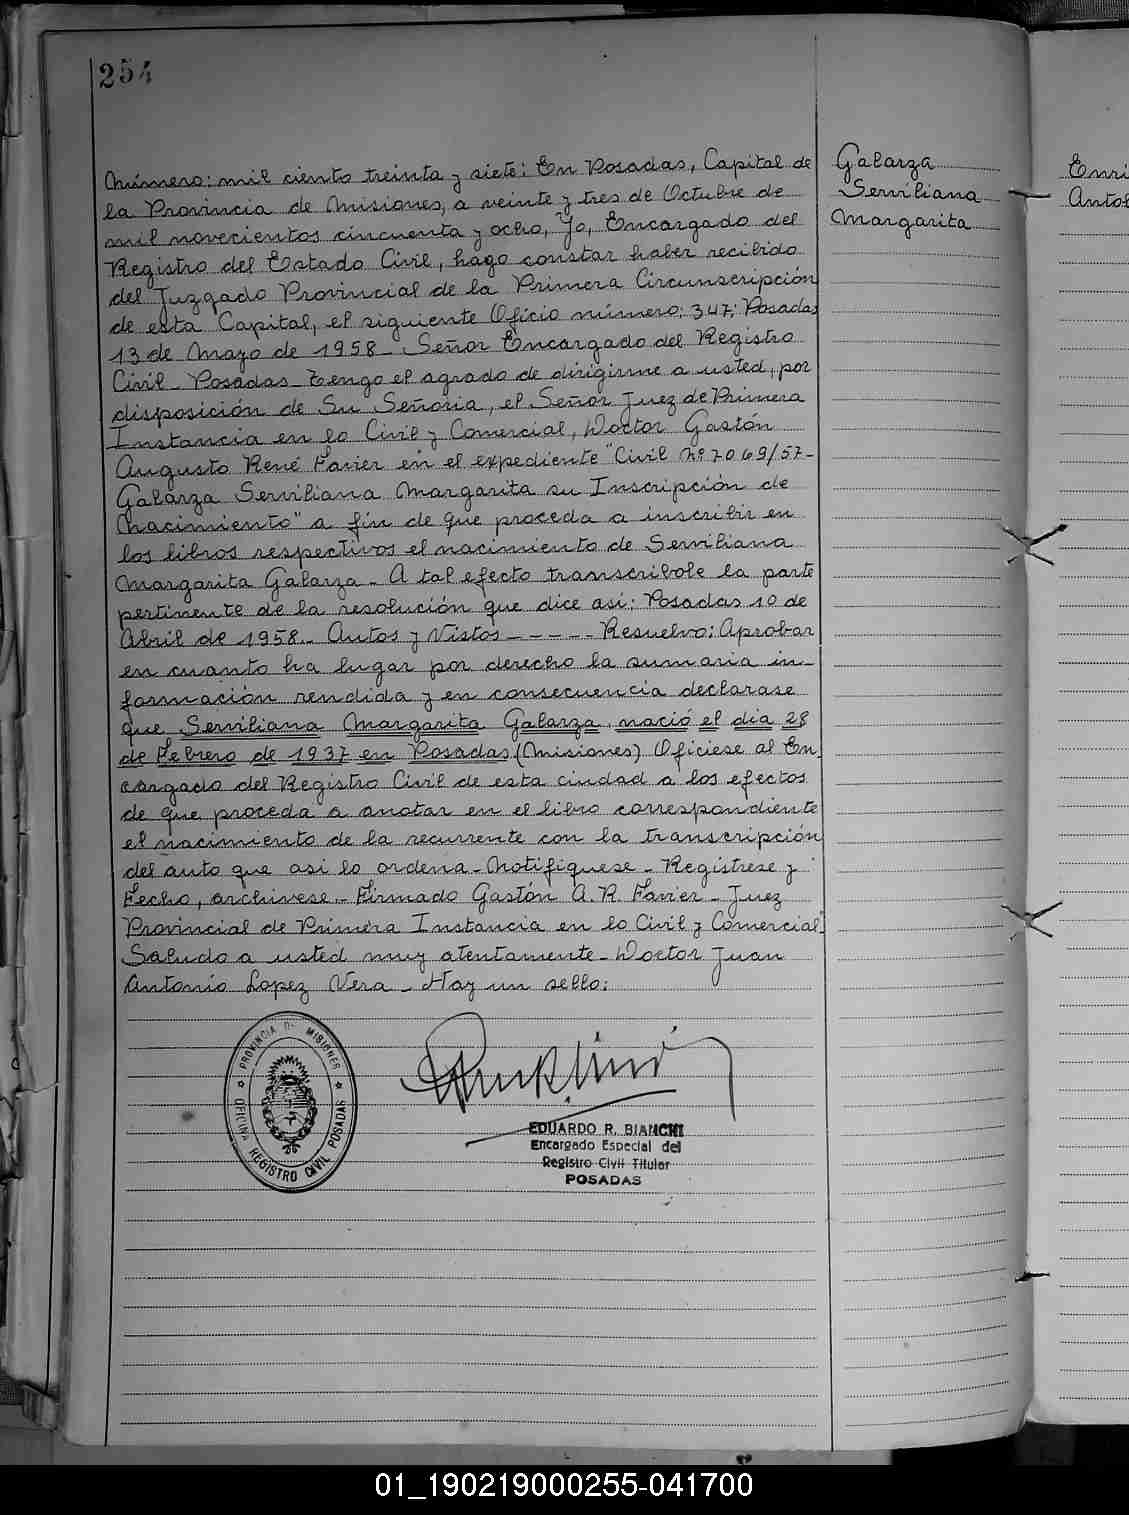 254
Número: mil ciento treinta y siete: En Posadas, Capital de
la Provincia de Misiones, a veinte y tres de Octubre de
mil novecientos cincuenta y ocho, Yo, Encargado del
Registro del Estado Civil, hago constar haber recibido
del Juzgado Provincial de la Primera Circunscripción
de esta Capital, el siguiente Oficio número: 347; Posadas
13 de Mayo de 1958 - Señor Encargado del Registro
Civil - Posadas - Tengo el agrado de dirigirme a usted, por
disposición de Su Señoria, el Señor Juez de Primera
Instancia en lo Civil y Comercial, Doctor Gastón
Augusto René Favier en el expediente "Civil Nº 7069/57-
Galarza Serviliana Margarita su Inscripción de
Nacimiento" a fin de que proceda a inscribir en
los libros respectivos el nacimiento de Serviliana
Margarita Galarza - A tal efecto transcribole la parte
pertinente de la resolución que dice asi: Posadas 10 de
Abril de 1958.- Autos y Vistos - - - - - Resuelvo: Aprobar
en cuanto ha lugar por derecho la sumaria in-
formación rendida y en consecuencia declarase
que Serviliana Margarita Galarza, nació el dia 28
de Febrero de 1937 en Posadas (Misiones) Ofíciese al En-
cargado del Registro Civil de esta ciudad a los efectos
de que proceda a anotar en el libro correspondiente
el nacimiento de la recurrente con la transcripción
del auto que asi lo ordena - Notifiquese - Regístrese y
Fecho, archivese.- Firmado Gastón A. R. Favier - Juez
Provincial de Primera Instancia en lo Civil y Comercial".
Saludo a usted muy atentamente - Doctor Juan
Antonio Lopez Vera - Hay un sello:
PROVINCIA DE MISIONES
OFICINA REGISTRO CIVIL POSADAS
EDUARDO R. BIANCHI
Encargado Especial del
Registro Civil Titular
POSADAS
Galarza
Serviliana
Margarita
Enri
Antol
01_190219000255-041700